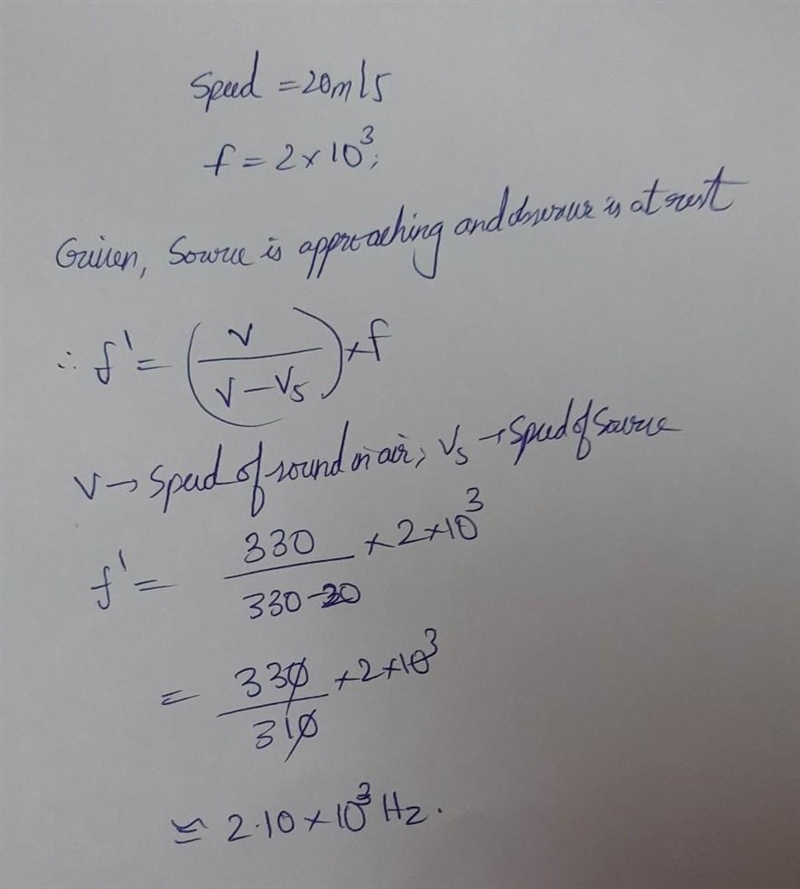 Speed = 20m/s
f = 2×10³;
Given, Source is approaching and observer is at rest
∴ f' = (V / (V - Vs)) × f
V → Speed of sound in air, Vs → Speed of Source
f' = 330 / (330-20) × 2×10³
= 330 / 310 × 2×10³
≌ 2.10 × 10³ Hz.